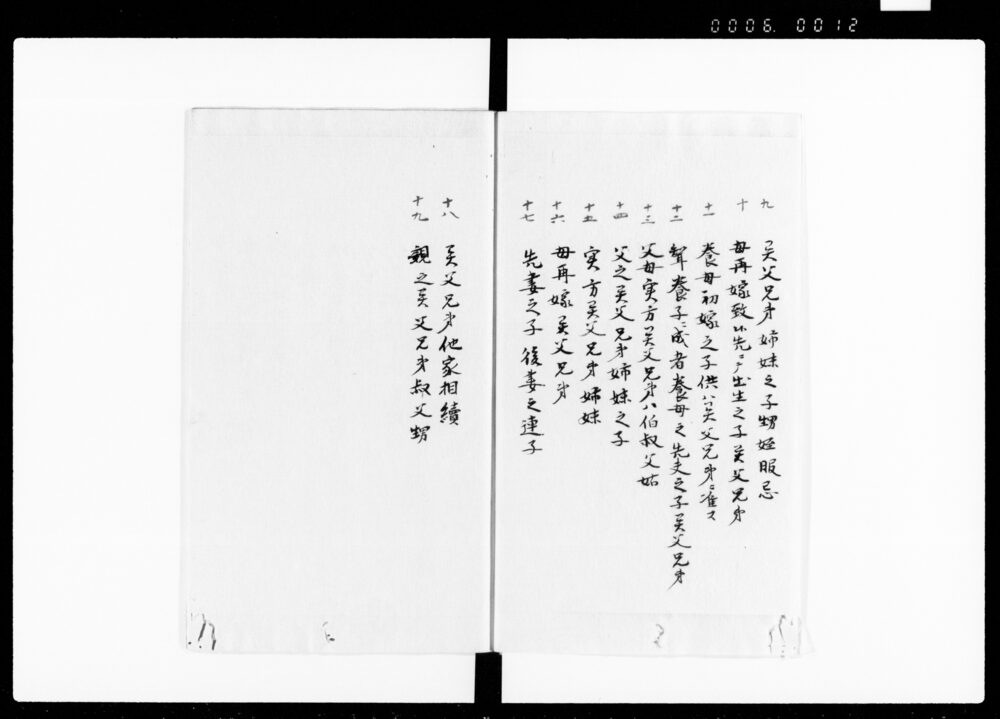 0006. 0012
九 異父兄弟姉妹之子甥姪服忌
十 母再嫁致候先ニ而出生之子異父兄弟
十一 養母初嫁之子供ハ異父兄弟ニ准ス
十二 聟養子ニ成者養母之先夫之子異父兄弟
十三 父母実方異父兄弟ハ伯叔父姑
十四 父之異父兄弟姉妹之子
十五 実方異父兄弟姉妹
十六 母再嫁異父兄弟
十七 先妻之子後妻之連子
十八 異父兄弟他家相続
十九 親之異父兄弟叔父甥